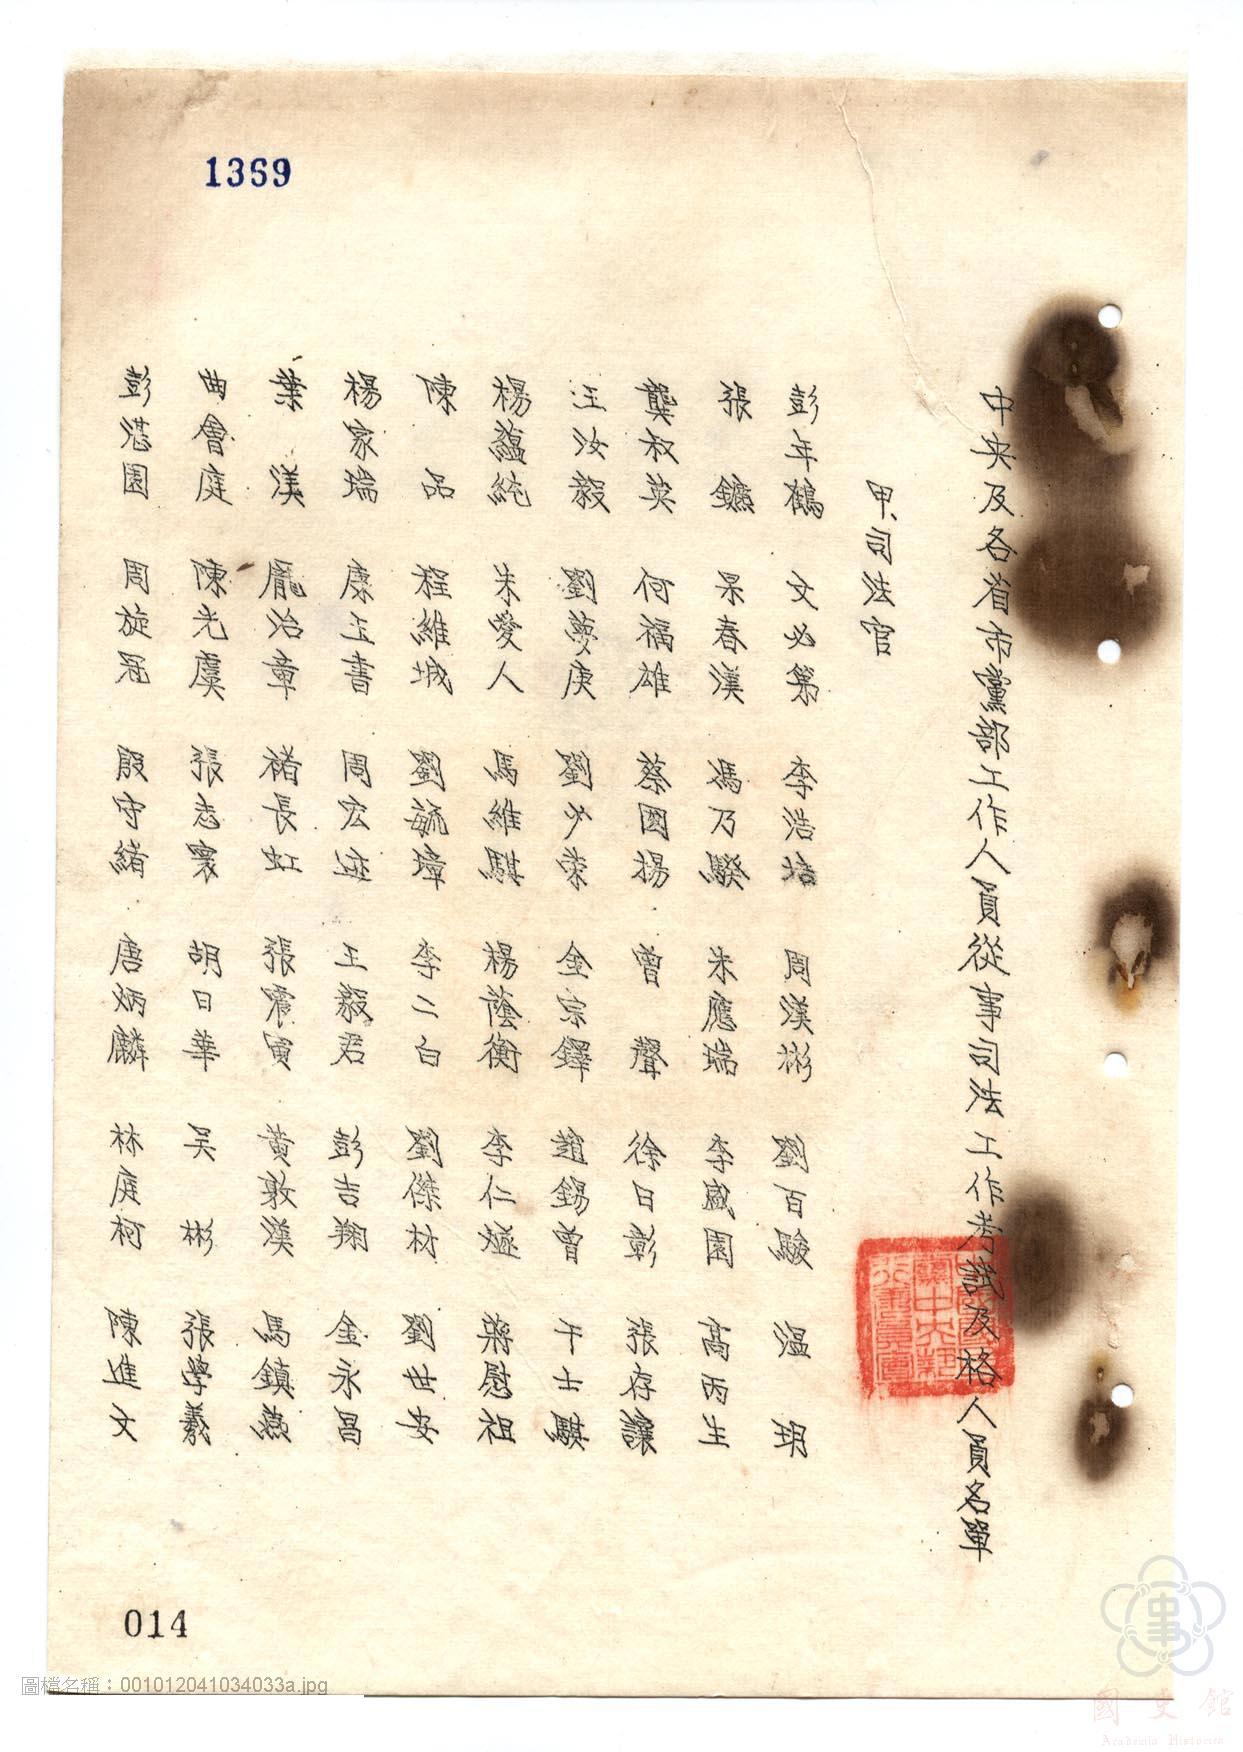 1369
中央及各省市黨部工作人員從事司法工作考試及格人員名單
甲、司法官
彭年鶴 文必第 李浩培 周漢彬 劉百駿 溫 玥
張 鑣 杲春漢 馮乃騤 朱應瑞 李盛園 高丙生
龔叔英 何福雄 蔡國揚 曾 聲 徐日彰 張存謙
王汝毅 劉夢庚 劉少榮 金宗鐸 趙錫曾 于士騏
楊蘊純 朱愛人 馬維騏 楊蔭衡 李仁 蔣慰祖
陳 品 程維城 劉毓璋 李二白 劉傑材 劉世安
楊家瑞 康玉書 周宏 王毅君 彭吉翔 金永昌
葉 漢 龐治章 褚長虹 張震寅 黃敦漢 馬鎮燕
曲會庭 陳光虞 張志寰 胡日華 吳 彬 張學羲
彭湛園 周旋冠 殷守緒 唐炳麟 林庭柯 陳進文
014
圖檔名稱：001012041034033a.jpg
國史館
Academia Historica